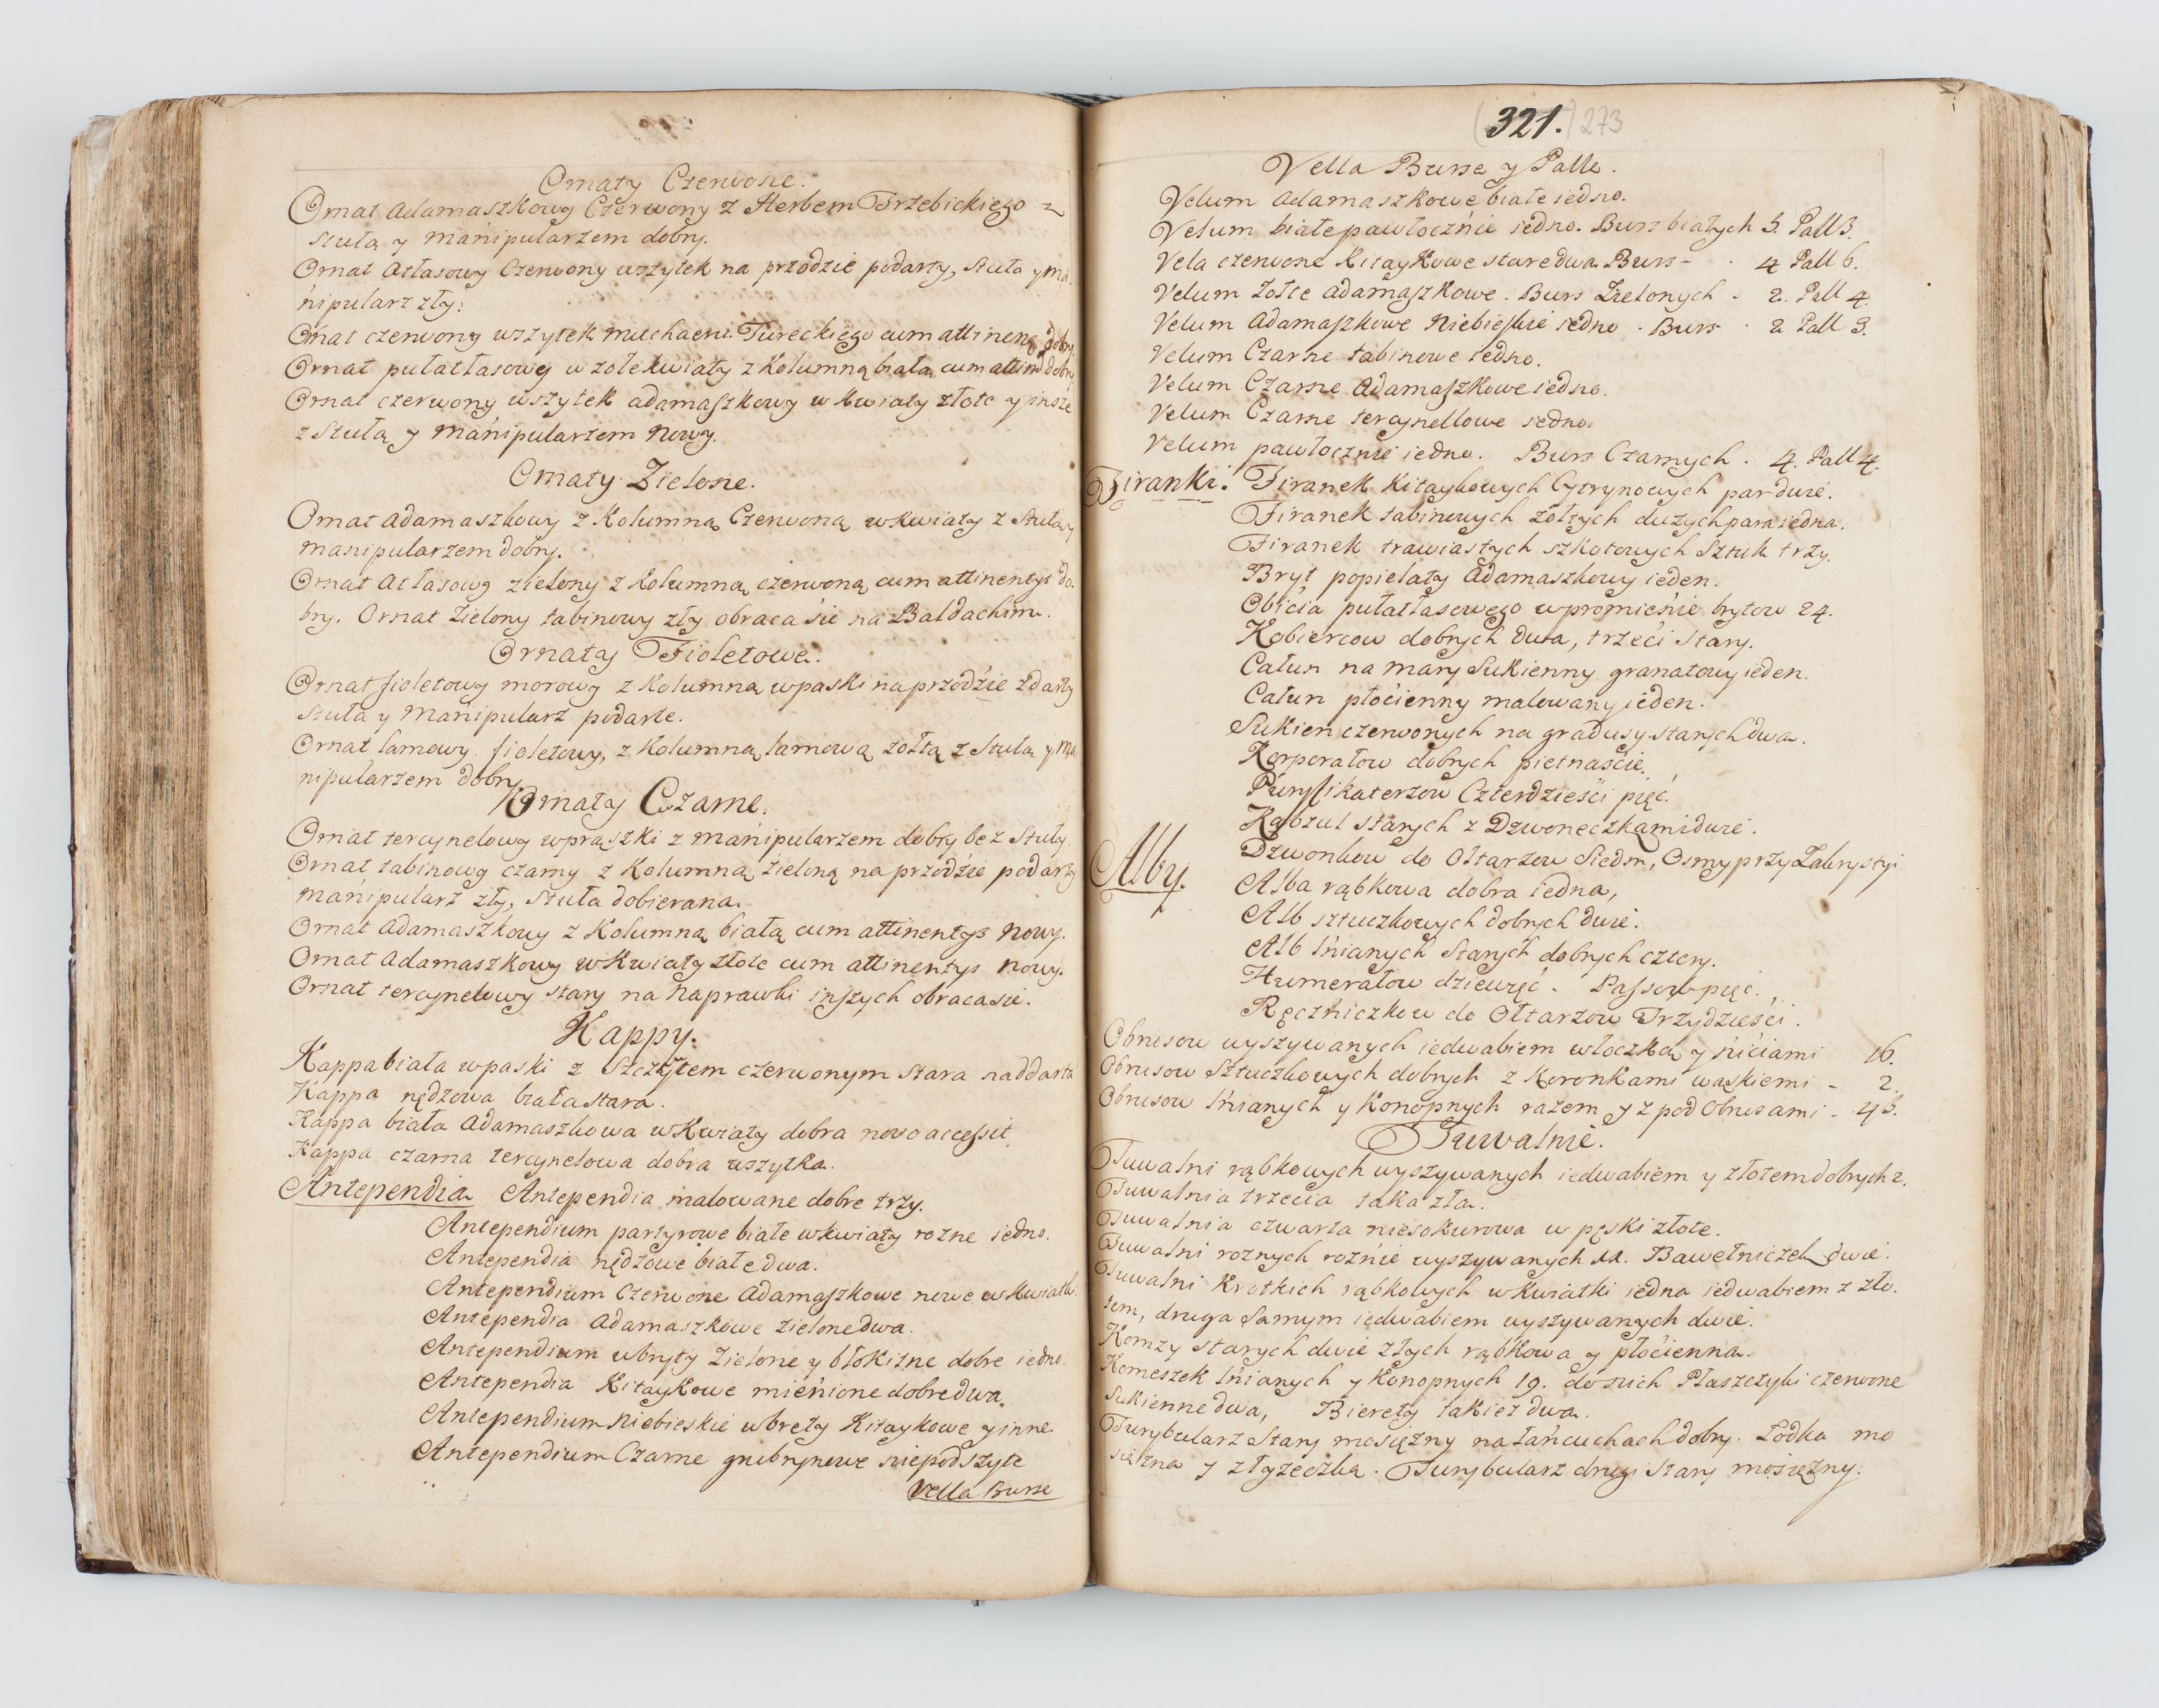 Ornaty Czerwone.
Ornat Adamaszkowy Czerwony z Herbem Trzebickiego z
Stułą y Manipularzem dobry.
Ornat Atłasowy Czerwony wszytek na przodzie podarty, Stuła y Ma
nipularz zły.
Ornat czerwony wszytek Tureckiego cum attinen: dobry
Ornat pułatłasowy w zołe kwiaty z Kolumną białą cum attin: dobry
Ornat czerwony wszytek adamaszkowy w kwiaty złote y insze
z Stułą y Manipularzem Nowy.
Ornaty Zielone.
Ornat Adamaszkowy z Kolumną Czerwoną w kwiaty z Stułą y
Manipularzem dobry.
Ornat Atłasowy zielony z Kolumną czerwoną cum attinentys do
bry. Ornat Zielony tabinowy zły obraca sie na Baldachim.
Ornaty Fioletowe.
Ornat fioletowy morowy z Kolumną w paski na przodzie zdarty
Stuła y Manipularz podarte.
Ornat lamowy fioletowy, z Kolumną lamową zołtą z Stułą y Ma
nipularzem dobry
Ornaty Czarne.
Ornat tercynelowy w prąszki z Manipularzem dobry bez Stuły.
Ornat tabinowy czarny z Kolumną zieloną na przodzie podarty
Manipularz zły, Stuła dobierana.
Ornat Adamaszkowy z Kolumną białą cum attinentys Nowy.
Ornat Adamaszkowy w Kwiaty złote cum attinentys Nowy.
Ornat tercynelowy stary na Naprawki inszych obraca sie.
Kappy.
Kappa biała w paski z Szczytem czerwonym stara naddarta
Kappa nędzowa biała stara.
Kappa biała Adamaszkowa w Kwiaty dobra novo accessit
Kappa czarna tercynelowa dobra wszytka.
Antependia Antependia malowane dobre trzy.
Antependium partyrowe białe w kwiaty rozne iedno.
Antependia nędzowe białe dwa.
Antependium Czerwone Adamaszkowe nowe w kwiatki
Antependia Adamaszkowe zielone dwa.
Antependium w bryty Zielone y błokitne dobre iedno.
Antependia Kitaykowe mienione dobre dwa.
Antependium Niebieskie w brety Kitaykowe y inne
Antependium Czarne grubrynowe niepodszyte
Vella Bursse
321. 273
Vella Bursse y Palle.
Velum Adamaszkowe białe iedno.
Velum białe pawłocznie iedno. Burs białych 3. Pall 3.
Vela czerwone Kitaykowe stare dwa Burs - 4 Pall 6.
Velum Zołte Adamaszkowe. Burs Zielonych - 2. Pall 4.
Velum Adamaszkowe Niebieskie iedno. Burs - 2 Pall 3.
Velum Czarne tabinowe iedno.
Velum Czarne Adamaszkowe iedno.
Velum Czarne tercynellowe iedno.
Velum pawłocznie iedno. Burs Czarnych. 4. Pall 4.
Firanki. Firanek Kitaykowych Cytrynowych par dwie.
Firanek tabinowych zołtych duzych para iedna.
Firanek trawiastych szkotowych Sztuk trzy.
Bryt popielaty Adamaszkowy ieden.
Obicia pułatłasowego w promienie brytow 24.
Kobiercow dobrych dwa, trzeci Stary.
Całun na mary Sukienny granatowy ieden.
Całun płocienny malowany ieden.
Sukien czerwonych na gradusy starych dwa.
Korporałow dobrych pietnaście.
Puryfikaterzow Czterdzieści pięć.
Kąbzul starych z Dzwoneczkami dwie.
Dzwonkow do Ołtarzow Siedm, Osmy przy Zakrystyi
Alby. Alba rąbkowa dobra iedna,
Alb sztuczkowych dobrych dwie.
Alb lnianych Starych dobrych cztery.
Humerałow dziewięć. Passow pięć.
Ręczniczkow do Ołtarzow Trzydzieści.
Obrusow wyszywanych iedwabiem włoczką y nićiami 16.
Obrusow Sztuczkowych dobrych z Koronkami wąskiemi - 2.
Obrusow lnianych y Konopnych razem y z pod Obrusami -
Tuwalnie.
Tuwalni rąbkowych wyszywanych iedwabiem y złotem dobrych 2.
Tuwalnia trzecia taka zła.
Tuwalnia czwarta niesokurowa w pęski złote.
Tuwalni roznych roznie wyszywanych Bawełniczek dwie.
Tuwalni Krotkich rąbkowych w kwiatki iedna iedwabiem z zło.
tem, druga Samym iedwabiem wyszywanych dwie.
Komzy starych dwie złych rąbkowa y płocienna.
Komeszek lnianych y Konopnych 19. do nich Płaszczyki czerwone
Sukienne dwa, Bierety takież dwa.
Turybularz Stary mosiężny na łańcuchach dobry. Łodka mo
siężna y z łyżeczką. Turybularz drugi Stary mosiężny.